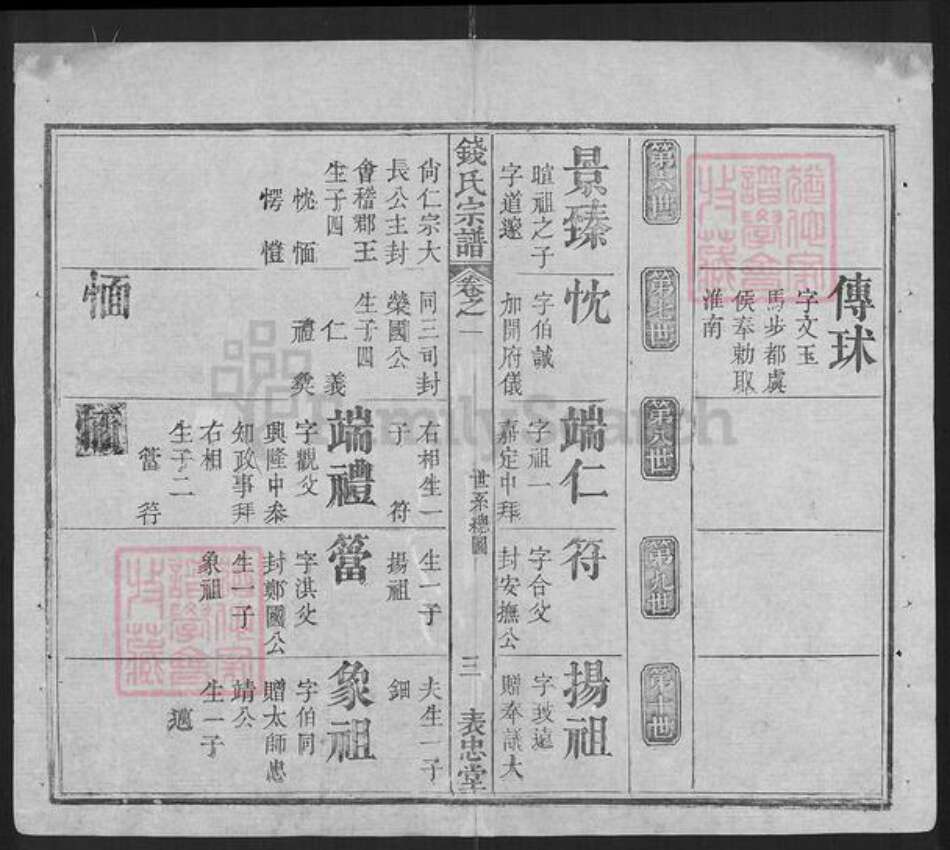 傳球
字文玉
馬步都虞
侯奉勅取
淮南
第六世
第七世
第八世
第九世
第十世
景臻
暄祖之子
字道邃
忱
字伯誠
加開府儀
端仁
字祖一
嘉定中拜
符
字合父
封安撫公
揚祖
字
贈奉議大
錢氏宗譜
卷之一
世系總圖
三
表忠堂
尙仁宗大
長公主封
會稽郡王
生子四
忱 愐
愕 愷
同三司封
榮國公
生子四
仁 義
禮
右相生一
子 符
生一子
揚祖
夫生一子
鈿
端禮
字觀父
興隆中叅
知政事拜
右相
生子二
簹 符
簹
字淇父
封鄭國公
生一子
象祖
象祖
字伯同
贈太師忠
靖公
生一子
愐
FamilySearch